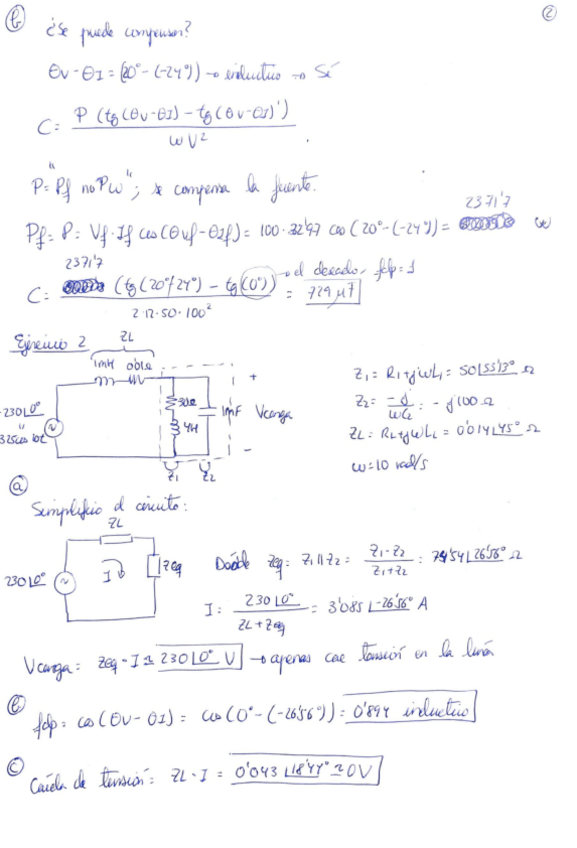 b) ¿Se puede compensar? 2
θv - θI = (20° - (-24°)) → inductivo → Sí
C = P (tg(θv-θI) - tg(θv-θI)') / ωV²
P = "Pf no Pw"; se compensa la fuente.
Pf = P = Vf · If cos(θvf - θIf) = 100 · 32'97 cos(20° - (-24°)) = 2371'7 W
C = 2371'7 (tg(20°+24°) - tg(0°)) / 2·π·50·100² = 729 μF
→ el deseado, fdp = 1
Ejercicio 2
ZL
1mH 0'01Ω
230∟0°
"
325cos 10t
30Ω
4H
1mF
+
Vcarga
-
Z1 Z2
Z1 = R1 + jωL1 = 50∟53'13° Ω
Z2 = -j / ωC2 = -j100 Ω
ZL = RL + jωLL = 0'014∟45° Ω
ω = 10 rad/s
a)
Simplifico el circuito:
ZL
230∟0°
I
Zeq
Donde Zeq = Z1 || Z2 = Z1·Z2 / Z1+Z2 = 74'54∟26'56° Ω
I = 230∟0° / ZL + Zeq = 3'085∟-26'56° A
Vcarga = Zeq · I ≃ 230∟0° V → apenas cae tensión en la línea
b)
fdp = cos(θv - θI) = cos(0° - (-26'56°)) = 0'894 inductivo
c)
Caída de tensión: ZL · I = 0'043∟18'44° ≃ 0V